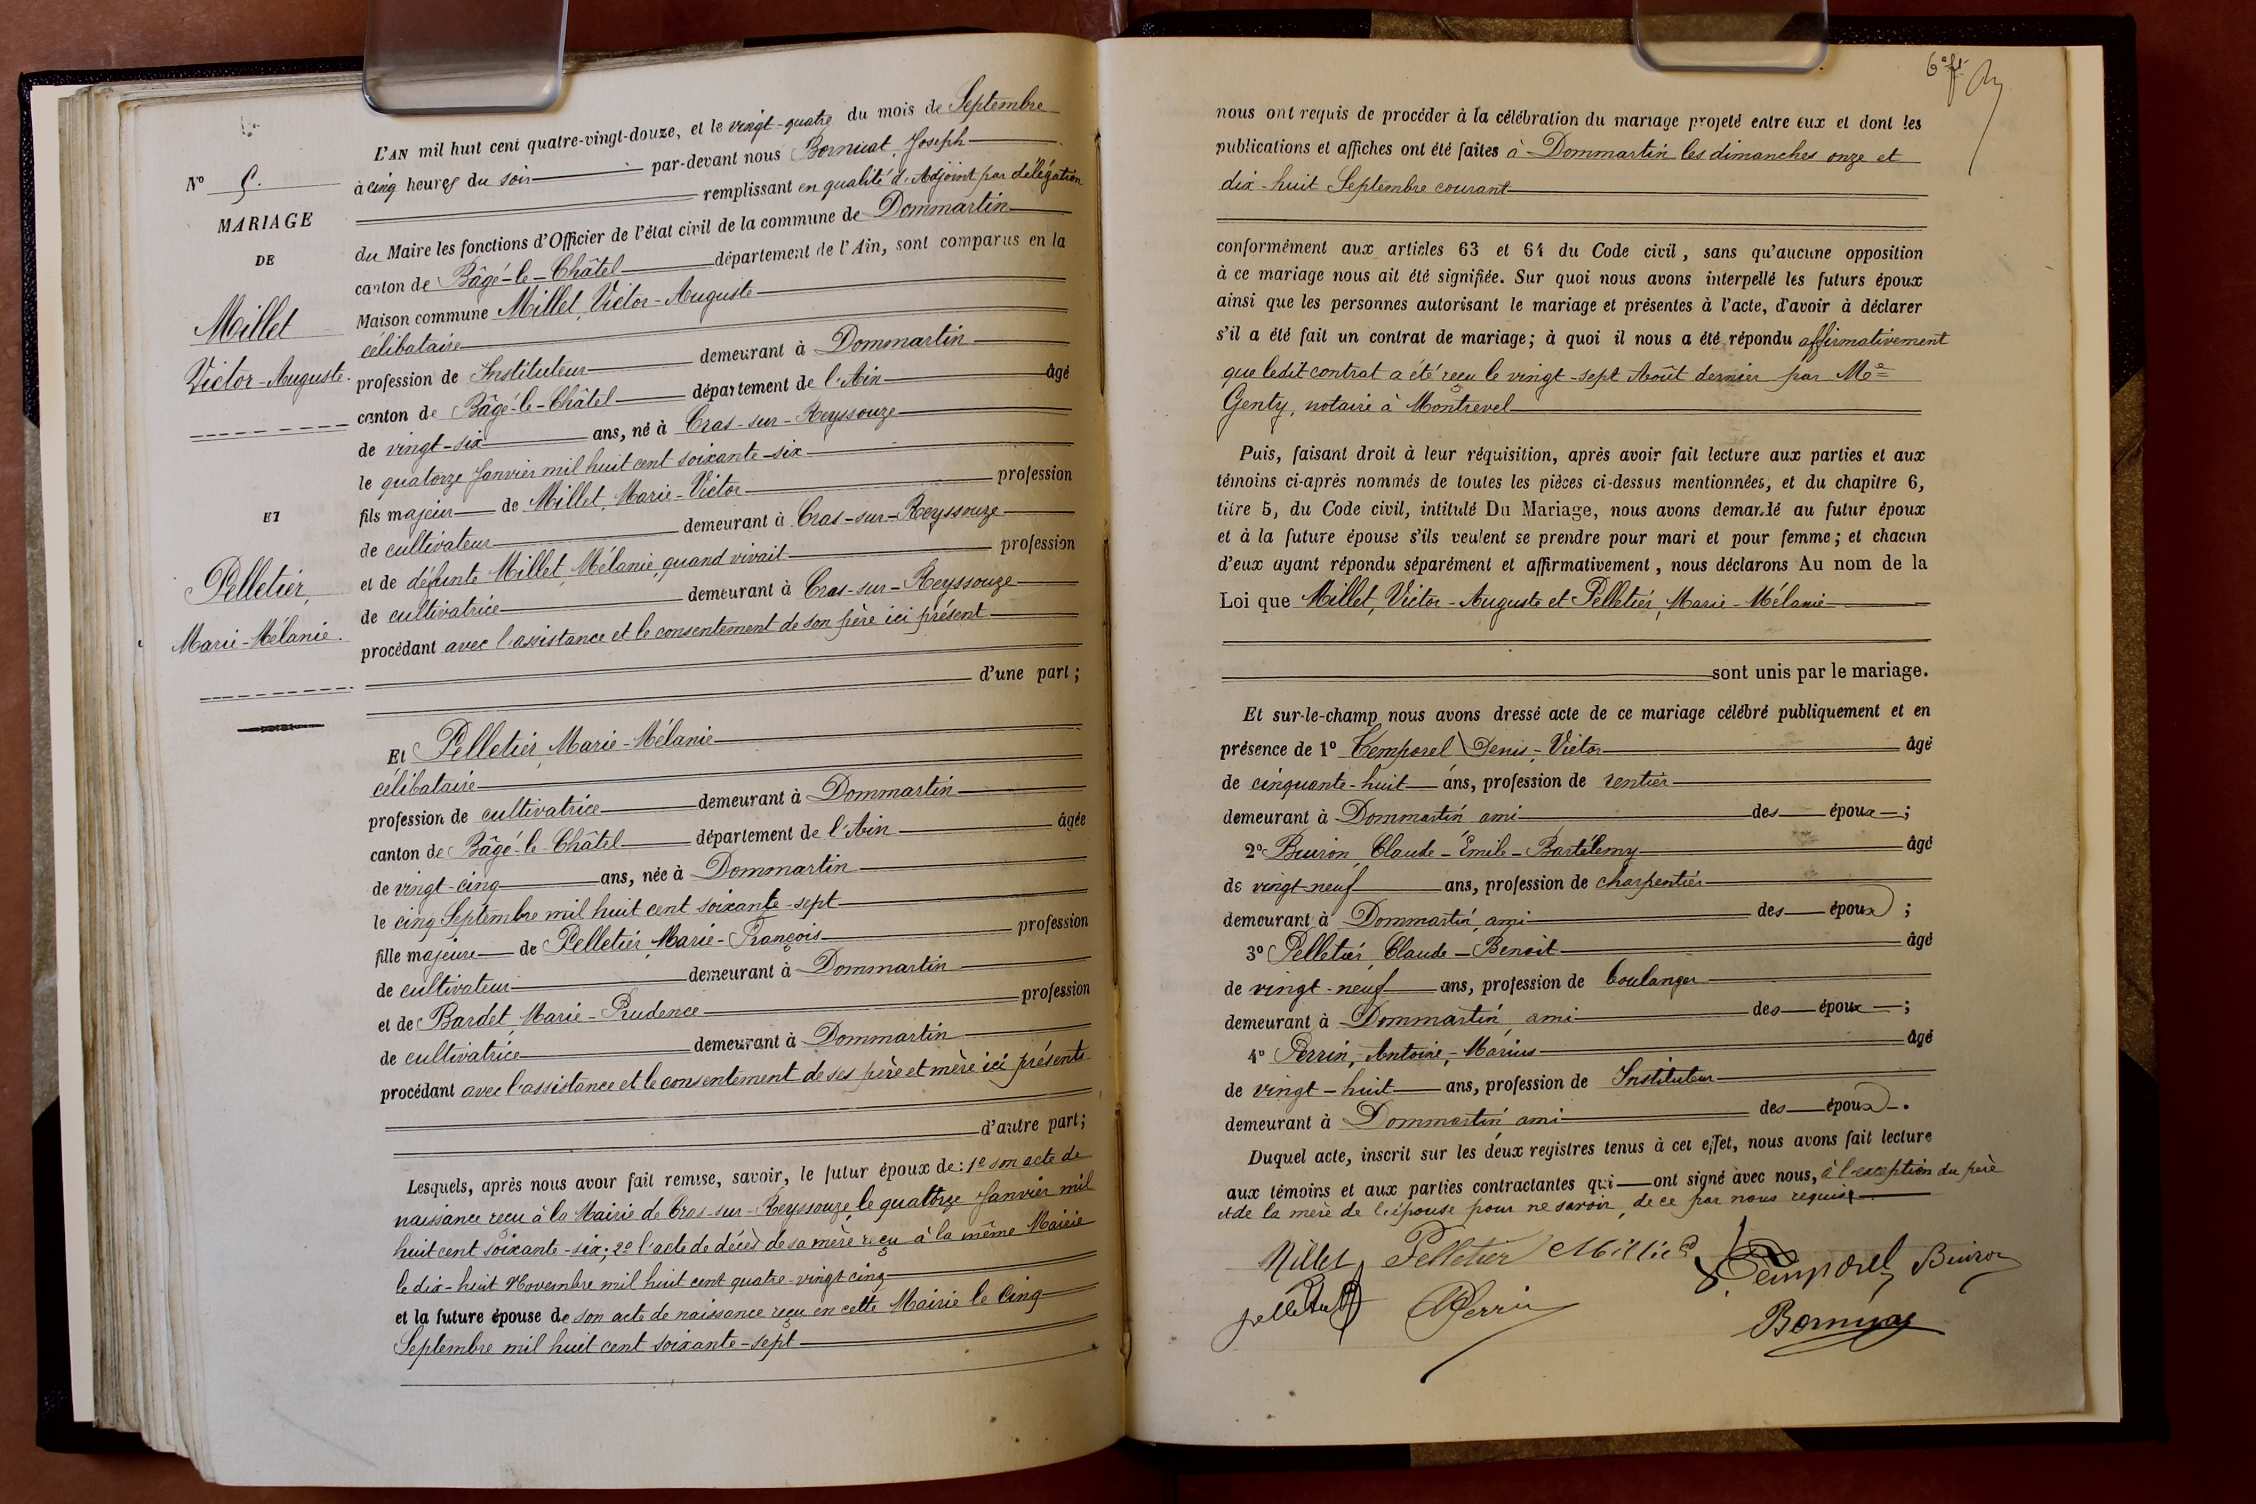 L'AN mil huit cent quatre-vingt-douze, et le vingt-quatre du mois de Septembre
à cinq heures du soir par-devant nous Bornicat, Joseph
remplissant en qualité d'Adjoint par délégation
du Maire les fonctions d'Officier de l'état civil de la commune de Dommartin
canton de Bâgé-le-Châtel département de l'Ain, sont comparus en la
Maison commune Millet, Victor-Auguste
célibataire
profession de Instituteur demeurant à Dommartin
canton de Bâgé-le-Châtel département de l'Ain âgé
de vingt-six ans, né à Cras-sur-Reyssouze
le quatorze Janvier mil huit cent soixante-six
fils majeur de Millet, Marie-Victor profession
de cultivateur demeurant à Cras-sur-Reyssouze
et de défunte Millet, Mélanie, quand vivait profession
de cultivatrice demeurant à Cras-sur-Reyssouze
procédant avec l'assistance et le consentement de son père ici présent
d'une part;
Nº 5.
MARIAGE
DE
Millet
Victor-Auguste.
ET
Pelletier,
Marie-Mélanie.
Et Pelletier, Marie-Mélanie
célibataire
profession de cultivatrice demeurant à Dommartin
canton de Bâgé-le-Châtel département de l'Ain âgée
de vingt-cinq ans, née à Dommartin
le cinq Septembre mil huit cent soixante-sept
fille majeure de Pelletier, Marie-François profession
de cultivateur demeurant à Dommartin
et de Bardet, Marie-Prudence profession
de cultivatrice demeurant à Dommartin
procédant avec l'assistance et le consentement de ses père et mère ici présents
d'autre part;
Lesquels, après nous avoir fait remise, savoir, le futur époux de: 1º son acte de
naissance reçu à la Mairie de Cras-sur-Reyssouze, le quatorze Janvier mil
huit cent soixante-six; 2º l'acte de décès de sa mère reçu à la même Mairie
le dix-huit Novembre mil huit cent quatre-vingt cinq
et la future épouse de son acte de naissance reçu en cette Mairie le Cinq
Septembre mil huit cent soixante-sept
6e ft
nous ont requis de procéder à la célébration du mariage projeté entre eux et dont les
publications et affiches ont été faites à Dommartin les dimanches onze et
dix-huit Septembre courant
conformément aux articles 63 et 64 du Code civil, sans qu'aucune opposition
à ce mariage nous ait été signifiée. Sur quoi nous avons interpellé les futurs époux
ainsi que les personnes autorisant le mariage et présentes à l'acte, d'avoir à déclarer
s'il a été fait un contrat de mariage; à quoi il nous a été répondu affirmativement
que ledit contrat a été reçu le vingt-sept Août dernier par Me
Genty, notaire à Montrevel
Puis, faisant droit à leur réquisition, après avoir fait lecture aux parties et aux
témoins ci-après nommés de toutes les pièces ci-dessus mentionnées, et du chapitre 6,
titre 5, du Code civil, intitulé Du Mariage, nous avons demandé au futur époux
et à la future épouse s'ils veulent se prendre pour mari et pour femme; et chacun
d'eux ayant répondu séparément et affirmativement, nous déclarons Au nom de la
Loi que Millet, Victor-Auguste et Pelletier, Marie-Mélanie
sont unis par le mariage.
Et sur-le-champ nous avons dressé acte de ce mariage célébré publiquement et en
présence de 1º Temporel Denis, Victor âgé
de cinquante-huit ans, profession de rentier
demeurant à Dommartin ami des époux;
2º Buiron, Claude-Émile-Bartélemy âgé
de vingt-neuf ans, profession de charpentier
demeurant à Dommartin, ami des époux;
3º Pelletier, Claude-Benoît âgé
de vingt-neuf ans, profession de boulanger
demeurant à Dommartin, ami des époux;
4º Perrin, Antoine, Marius âgé
de vingt-huit ans, profession de Instituteur
demeurant à Dommartin ami des époux.
Duquel acte, inscrit sur les deux registres tenus à cet effet, nous avons fait lecture
aux témoins et aux parties contractantes qui ont signé avec nous, à l'exception du père
et de la mère de l'épouse pour ne savoir, de ce par nous requis
Millet Pelletier Millet Temporel Buiron
Pelletier Perrin Bornicat